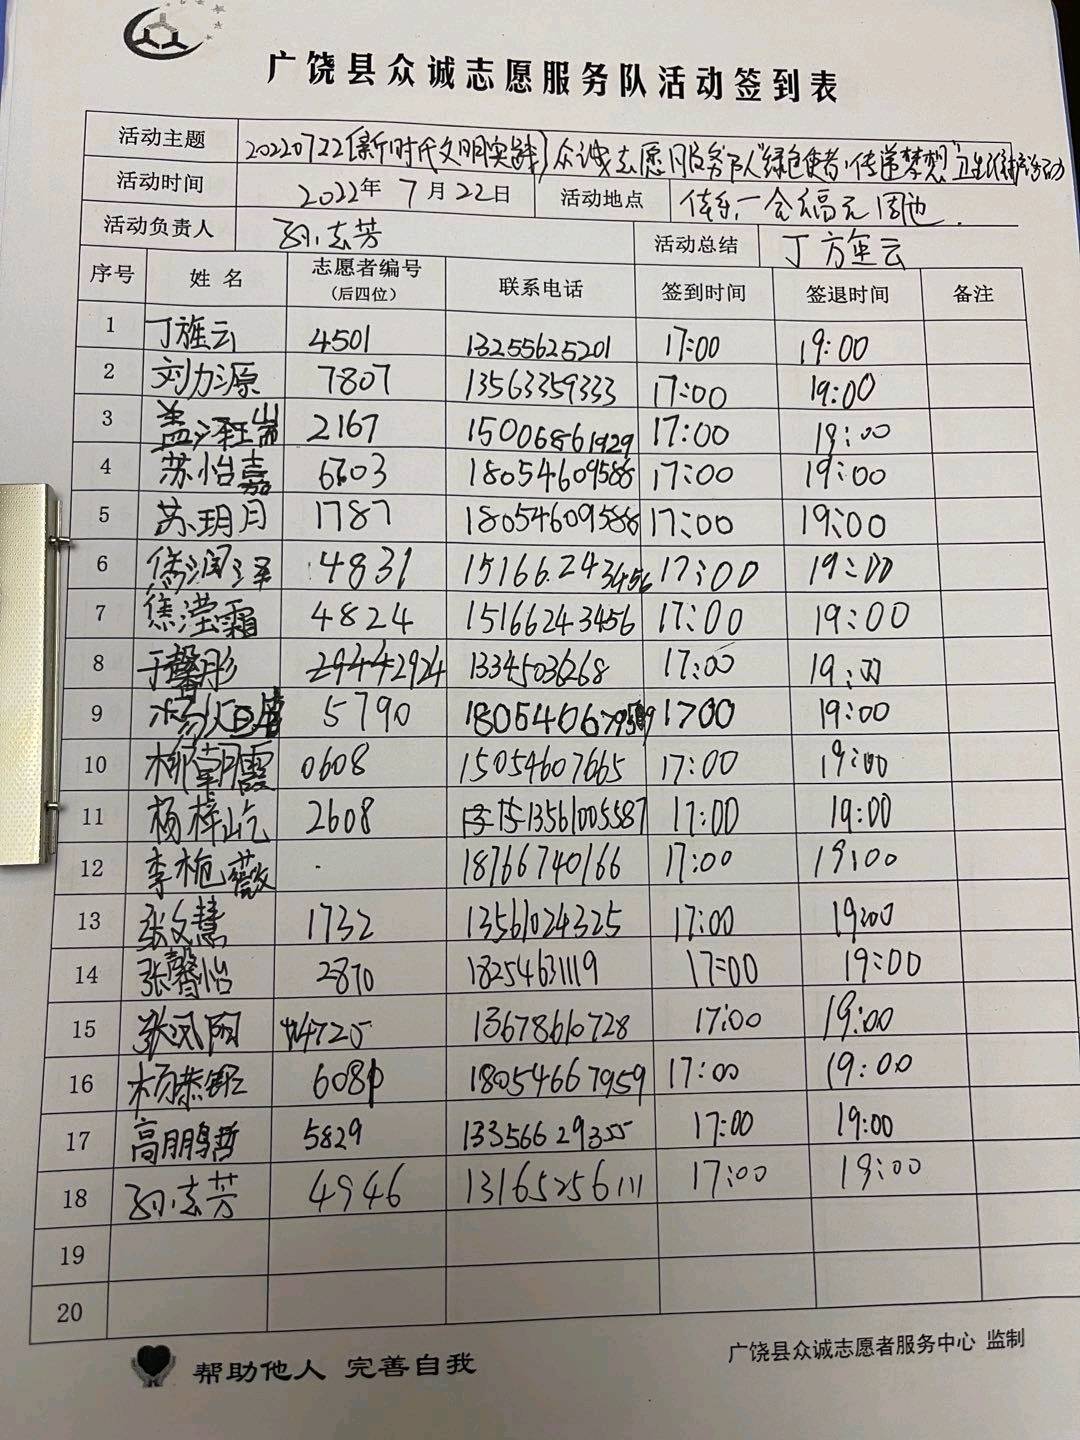 广饶县众诚志愿服务队活动签到表
活动主题 20220722{新时代文明实践}众诚志愿服务队"绿色使者·传递梦想"卫生 活动
活动时间 2022年7月22日 活动地点 佳乐一会福元周边.
活动负责人 孙志芳 活动总结 丁旌云
序号 姓名 志愿者编号 联系电话 签到时间 签退时间 备注
(后四位)
1 丁旌云 4501 13255625201 17:00 19:00
2 刘力源 7807 13563359333 17:00 19:00
3 盖 2167 15006861929 17:00 19:00
4 苏怡嘉 6603 18054609588 17:00 19:00
5 苏玥月 1787 18054609588 17:00 19:00
6 润泽 4831 15166243456 17:00 19:00
7 焦滢霜 4824 15166243456 17:00 19:00
8 于馨彤 2924 13345036268 17:00 19:00
9 杨 5790 17:00 19:00
10 柳朝霞 0608 15054607665 17:00 19:00
11 杨梓屹 2608 13561005587 17:00 19:00
12 李栀薇 18766740166 17:00 19:00
13 张文慧 1732 13561024325 17:00 19:00
14 张馨怡 2870 18254631119 17:00 19:00
15 张凤阁 4725 13678610728 17:00 19:00
16 杨恭 6081 18054667959 17:00 19:00
17 高鹏哲 5829 13356629355 17:00 19:00
18 孙志芳 4946 13165256111 17:00 19:00
19
20
帮助他人 完善自我
广饶县众诚志愿者服务中心 监制